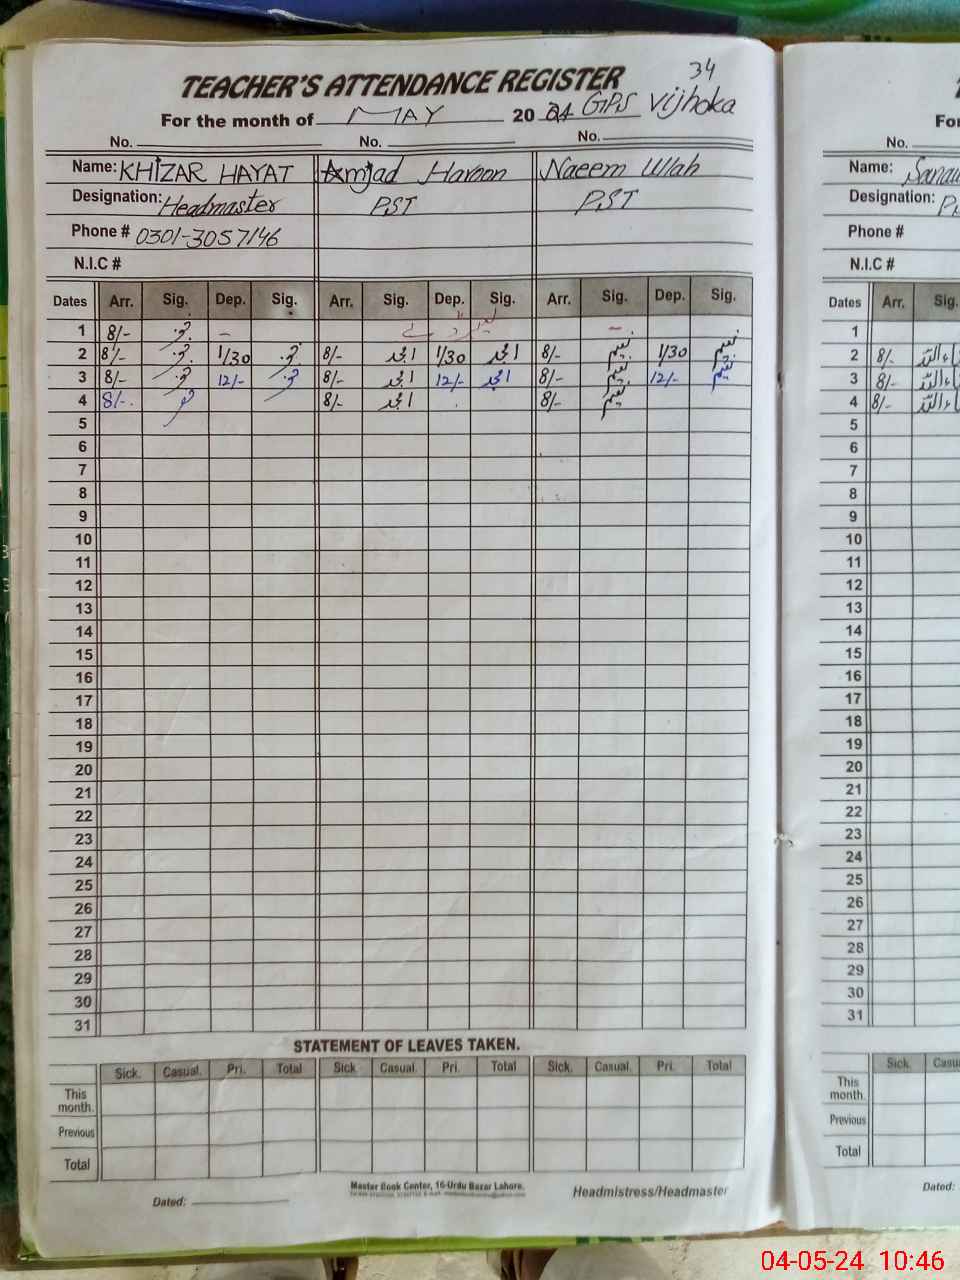 34
TEACHER'S ATTENDANCE REGISTER
For the month of MAY 20 24 GPS Vijhoka
No. No. No.
Name: KHIZAR HAYAT Amjad Haroon Naeem Ullah
Designation: Headmaster PST PST
Phone # 0301-3057146
N.I.C #
Dates Arr. Sig. Dep. Sig. Arr. Sig. Dep. Sig. Arr. Sig. Dep. Sig.
1 8/- -
2 8/- 1/30 8/- امجد 1/30 امجد 8/- نسیم 1/30 نسیم
3 8/- 12/- 8/- امجد 12/- امجد 8/- نسیم 12/- نسیم
4 8/- 8/- امجد 8/- نسیم
5
6
7
8
9
10
11
12
13
14
15
16
17
18
19
20
21
22
23
24
25
26
27
28
29
30
31
STATEMENT OF LEAVES TAKEN.
Sick. Casual. Pri. Total Sick Casual. Pri. Total Sick. Casual. Pri. Total
This month.
Previous
Total
Master Book Center, 16-Urdu Bazar Lahore.
Dated: Headmistress/Headmaster
For
No.
Name:
Designation:
Phone #
N.I.C #
Dates Arr. Sig.
1
2 8/-
3 8/-
4 8/-
5
6
7
8
9
10
11
12
13
14
15
16
17
18
19
20
21
22
23
24
25
26
27
28
29
30
31
Sick.
This month.
Previous
Total
Dated:
04-05-24 10:46